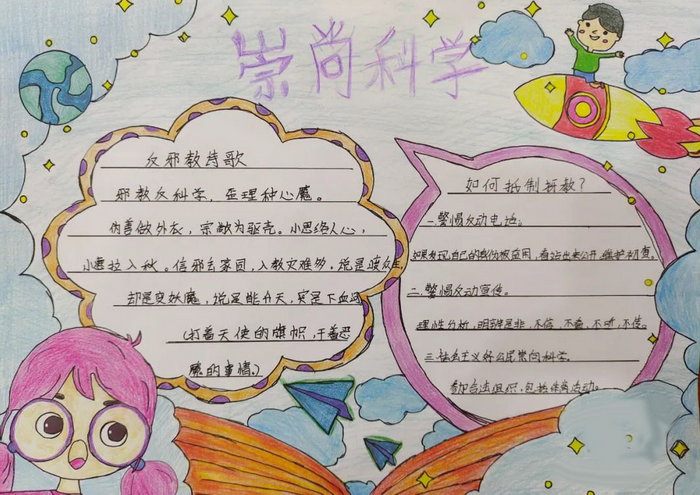 崇尚科学
反邪教诗歌
邪教反科学，歪理种心魔。
伪善做外衣，宗教为驱壳。小恩络人心，
小惠拉入伙。信邪丢家园，入教灾难多，说是渡众生
却是变妖魔，说是能升天，实是下血河
（打着天使的旗帜，干着恶
魔的事情。）
如何抵制邪教？
一.警惕反动电话。
如果发现自己的
二.警惕反动宣传。
理性分析，明辨是非，不信，不看，不听，不传。
三.社会主义好公民崇向科学
参加合法组织，